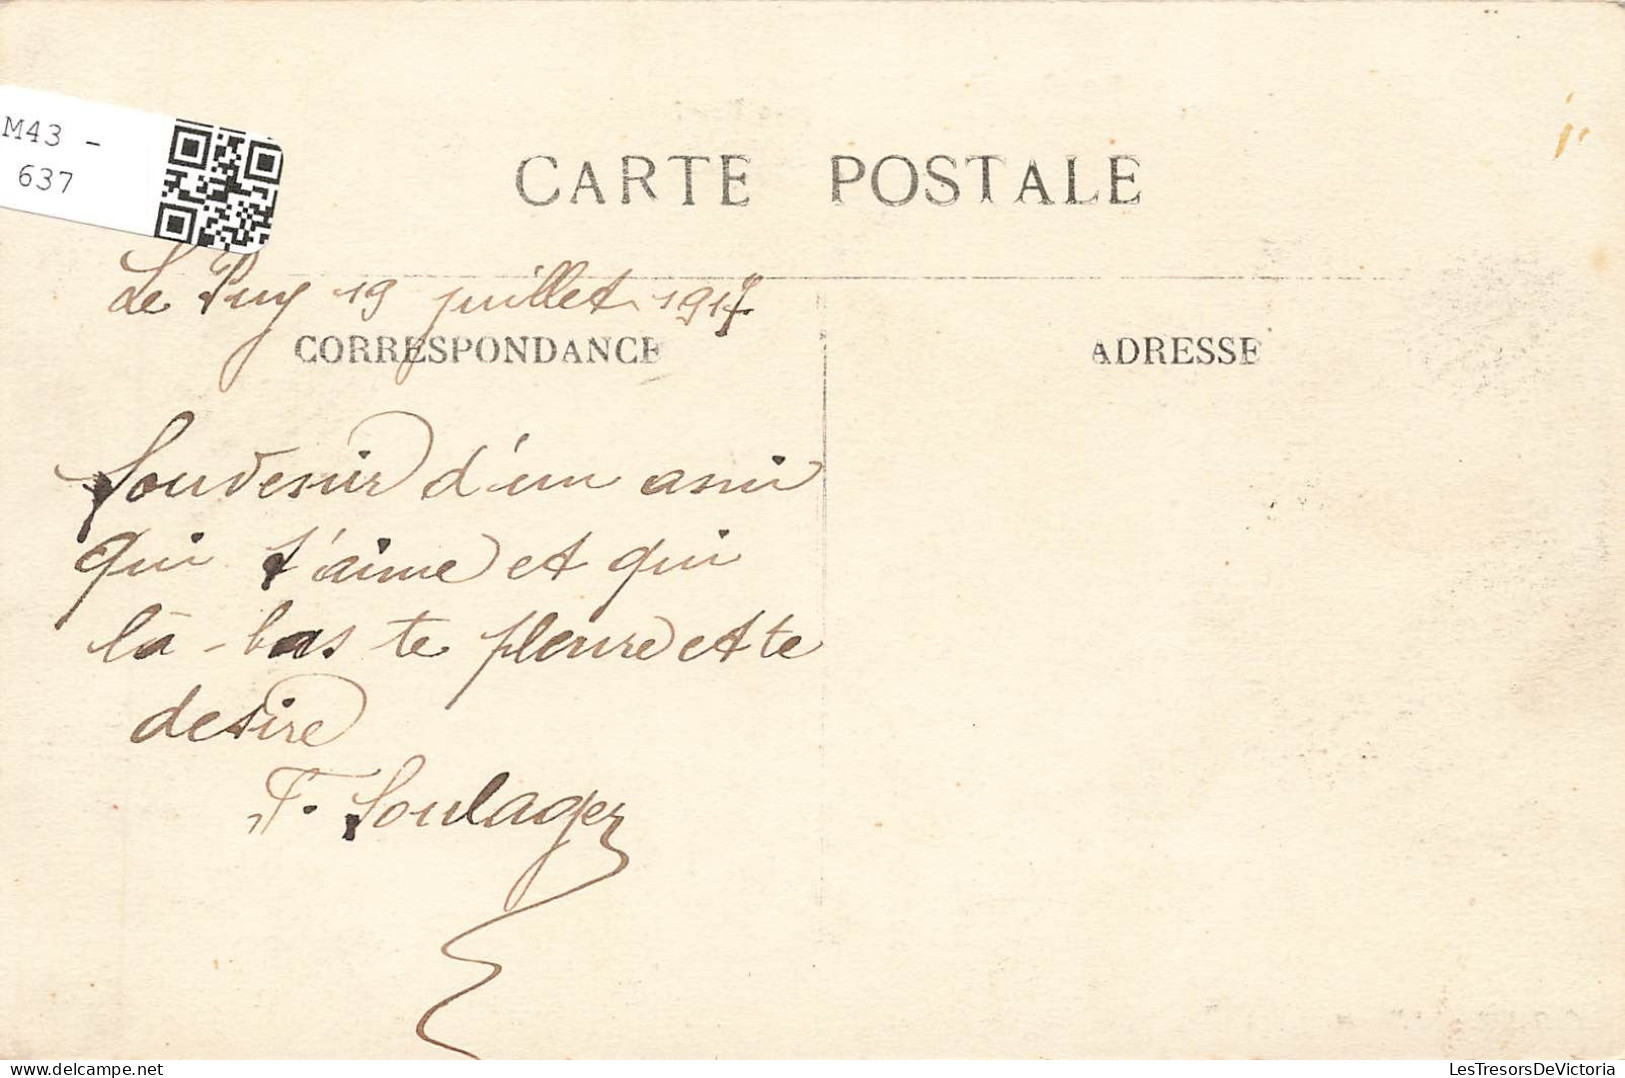 M43 -
637
CARTE POSTALE
Le Puy 19 juillet 1917
CORRESPONDANCE
ADRESSE
Souvenir d'un ami
qui t'aime et qui
là-bas te pleure et te
desire
F. Soulager
delcampe.net
LesTresorsDeVictoria